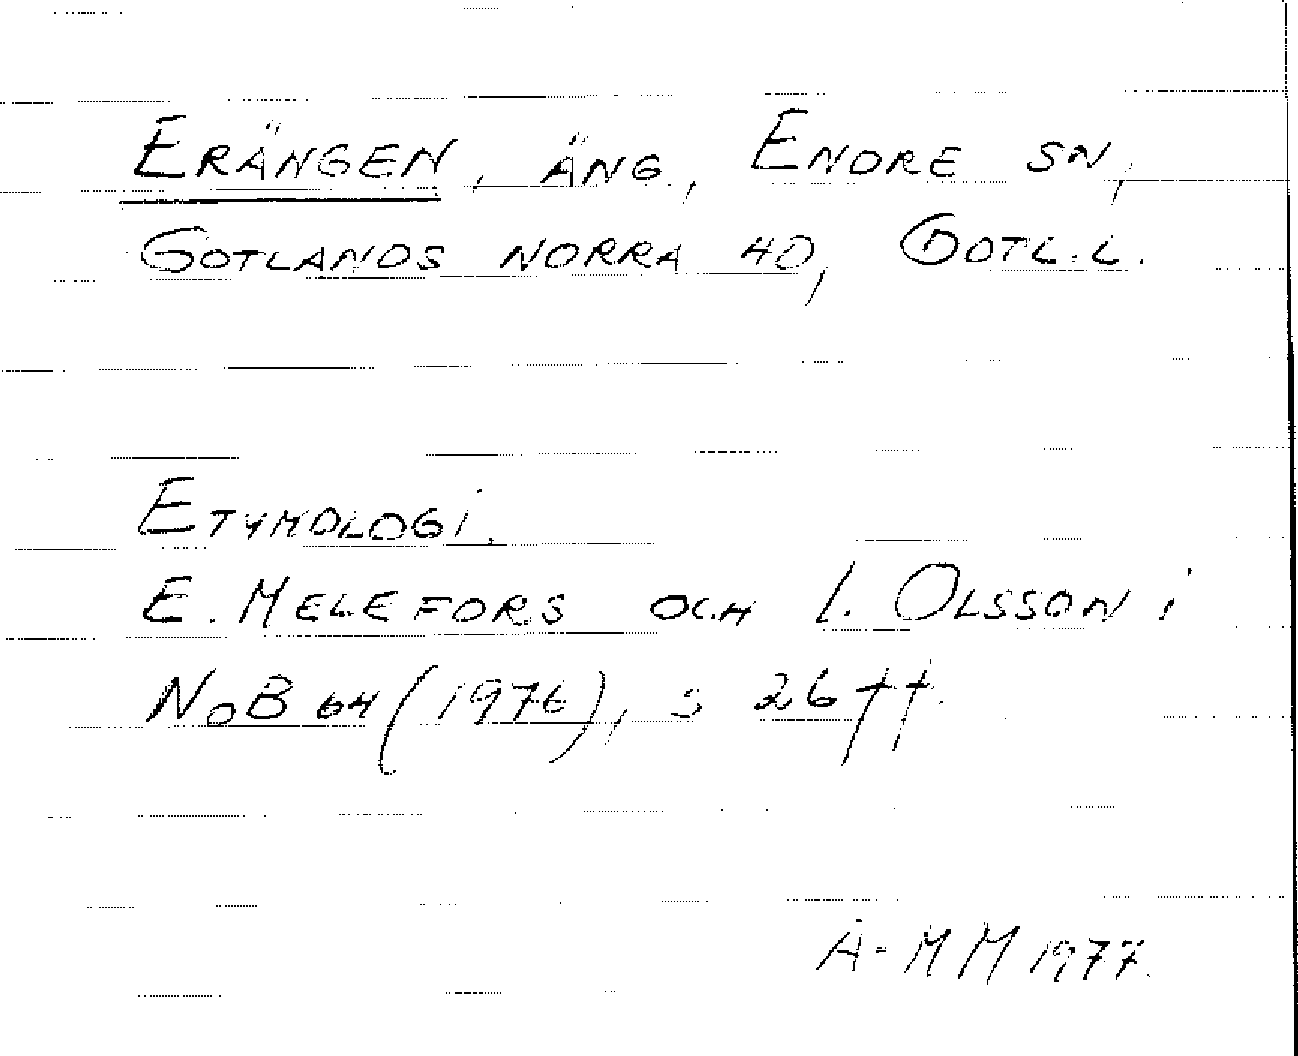 Erängen, äng., Endre sn,
Gotlands norra hd, Gotl.l.
Etymologi.
E. Melefors och I. Olsson i
NoB 64 (1976), s 26 ff.
A-MM 1977.